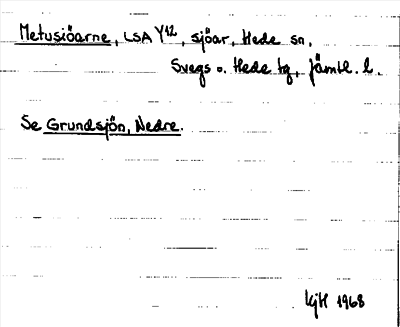 Metusiöarne, LSA Y12, sjöar, Hede sn,
Svegs o. Hede tg, Jämtl. l.
Se Grundsjön, Nedre.
KjH 1968